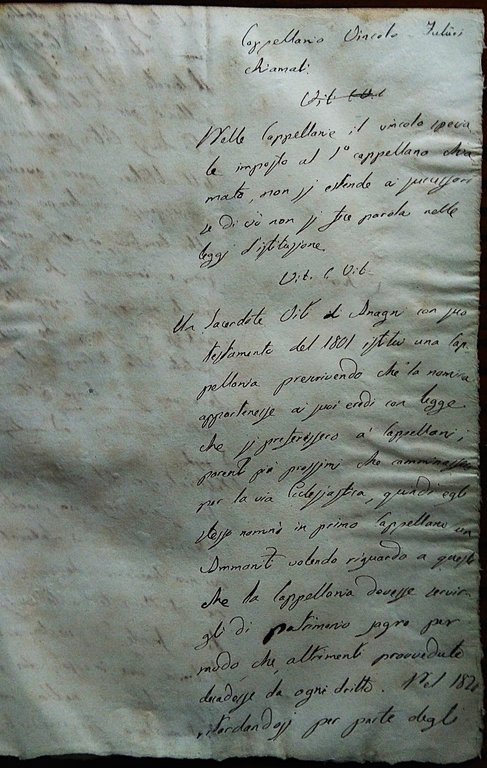 Cappellania Vincolo Futuri
chiamati
Vit. C Vit
Nelle Cappellanie il vincolo specia
le imposto al 1º cappellano chia
mato, non si estende ai successori
se di ciò non si fece parola nelle
leggi d'istituzione.
Vit. C Vit.
Un Sacerdote Vit d Anagni con suo
testamento del 1801 istituì una Cap-
pellania prescrivendo che la nomina
appartenesse ai suoi eredi con legge
che si preferissero a' Cappellani i
parenti più prossimi che camminassero
per la via Eclesiastica, quindi egli
stesso nominò in primo Cappellano un
Ammanti volendo riguardo a questi
che la Cappellania dovesse servir-
gli di patrimonio sagro per
modo che altrimenti provveduto
decadesse da ogni dritto. Nel 182
ritardandosi per parte degli